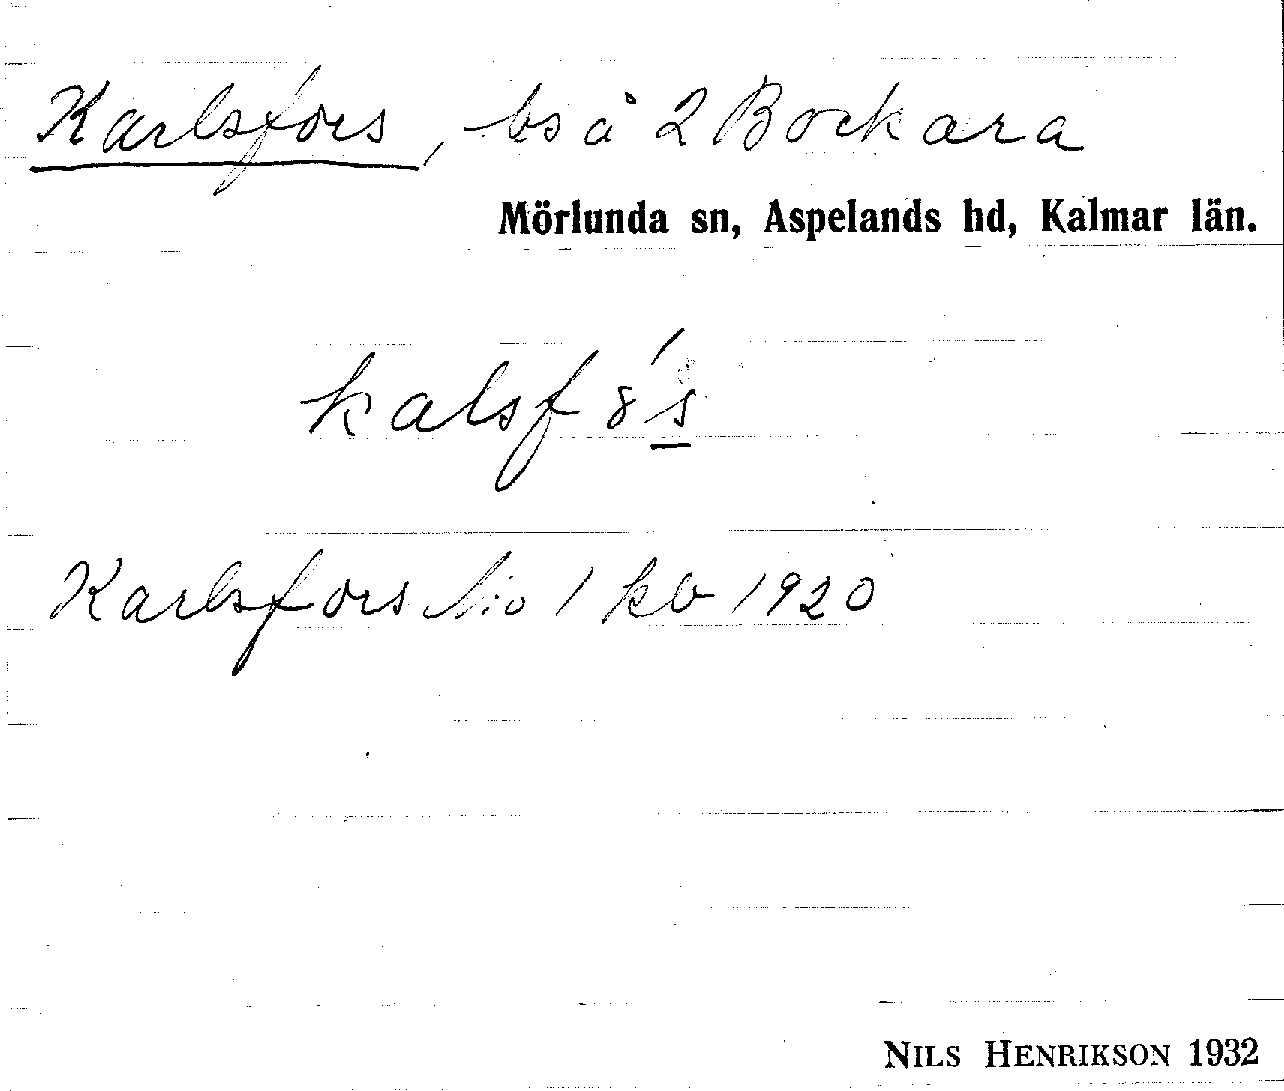 Karlsfors, bs å 2 Bockara
Mörlunda sn, Aspelands hd, Kalmar län.
kalsfȣ́s̲
Karlsfors No 1 kb 1920
NILS HENRIKSON 1932